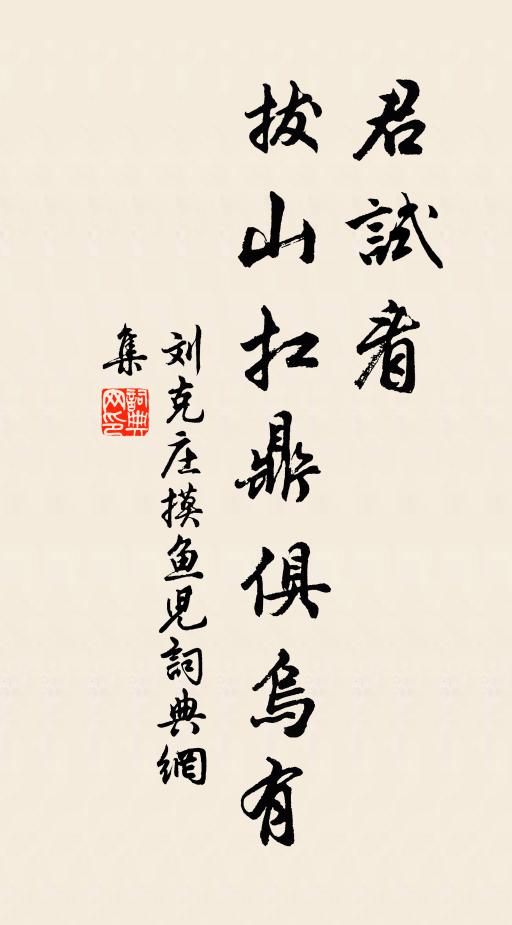 君試看
拔山扛鼎俱烏有
刘克庄摸鱼児詞典網
集
詞典
网印